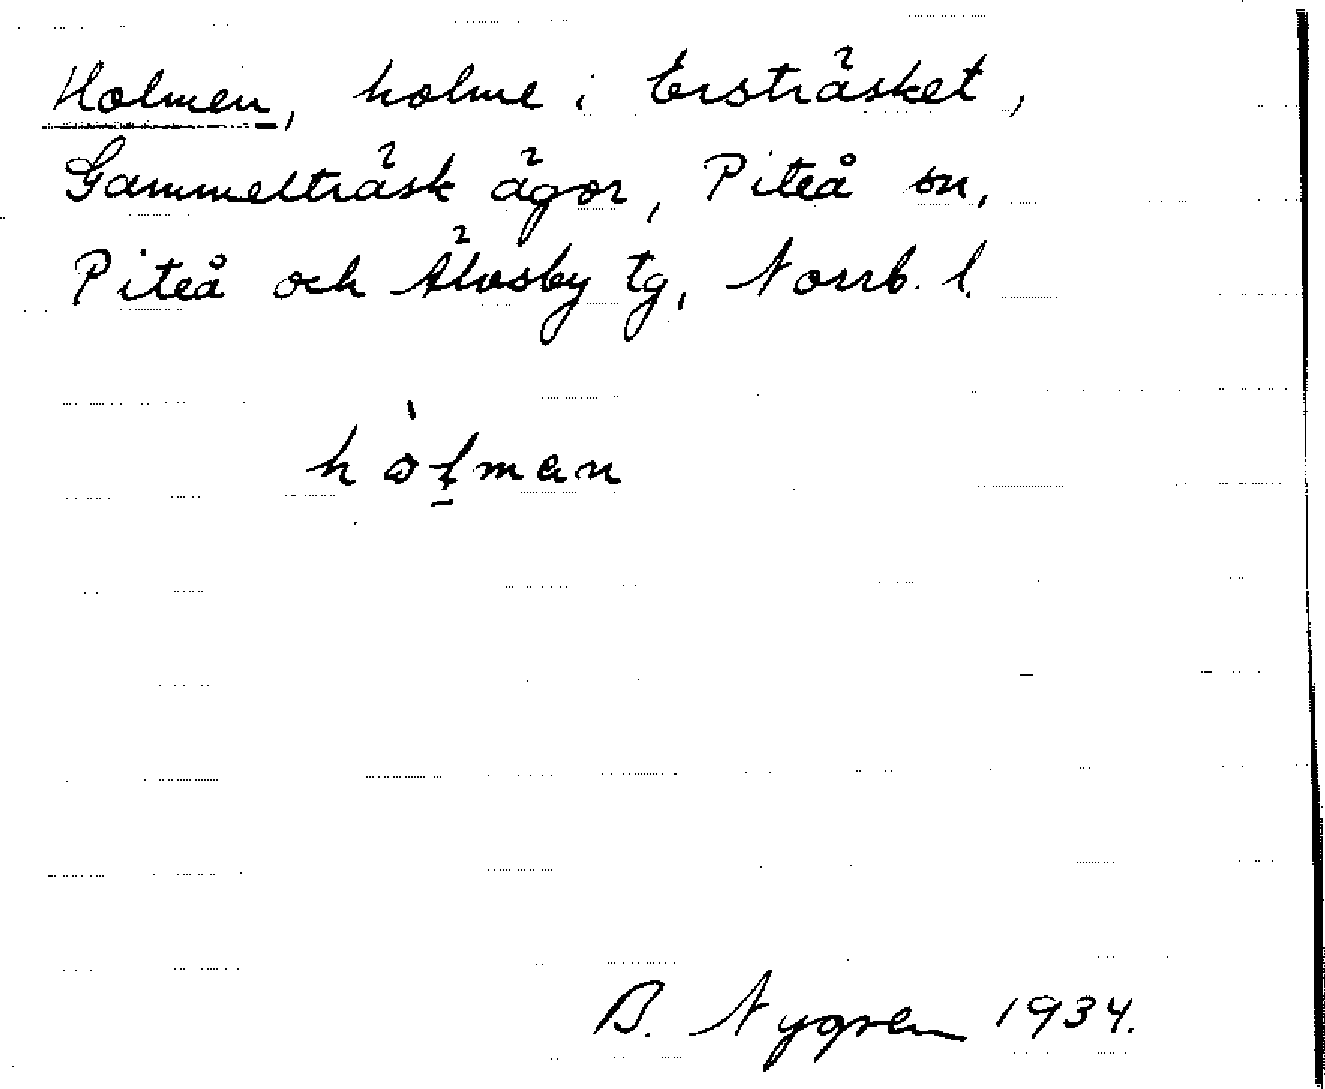 Holmen, holme i Ersträsket,
Gammelträsk ägor, Piteå sn,
Piteå och Älvsby tg, Norrb. l.
hòłman
B. Nygren 1934.